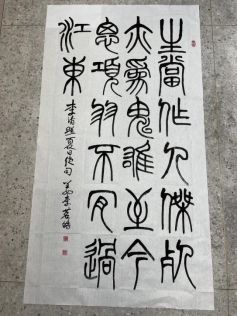 生當作人傑死
亦爲鬼雄至今
思項羽不肯過
江東
李清照夏日絕句